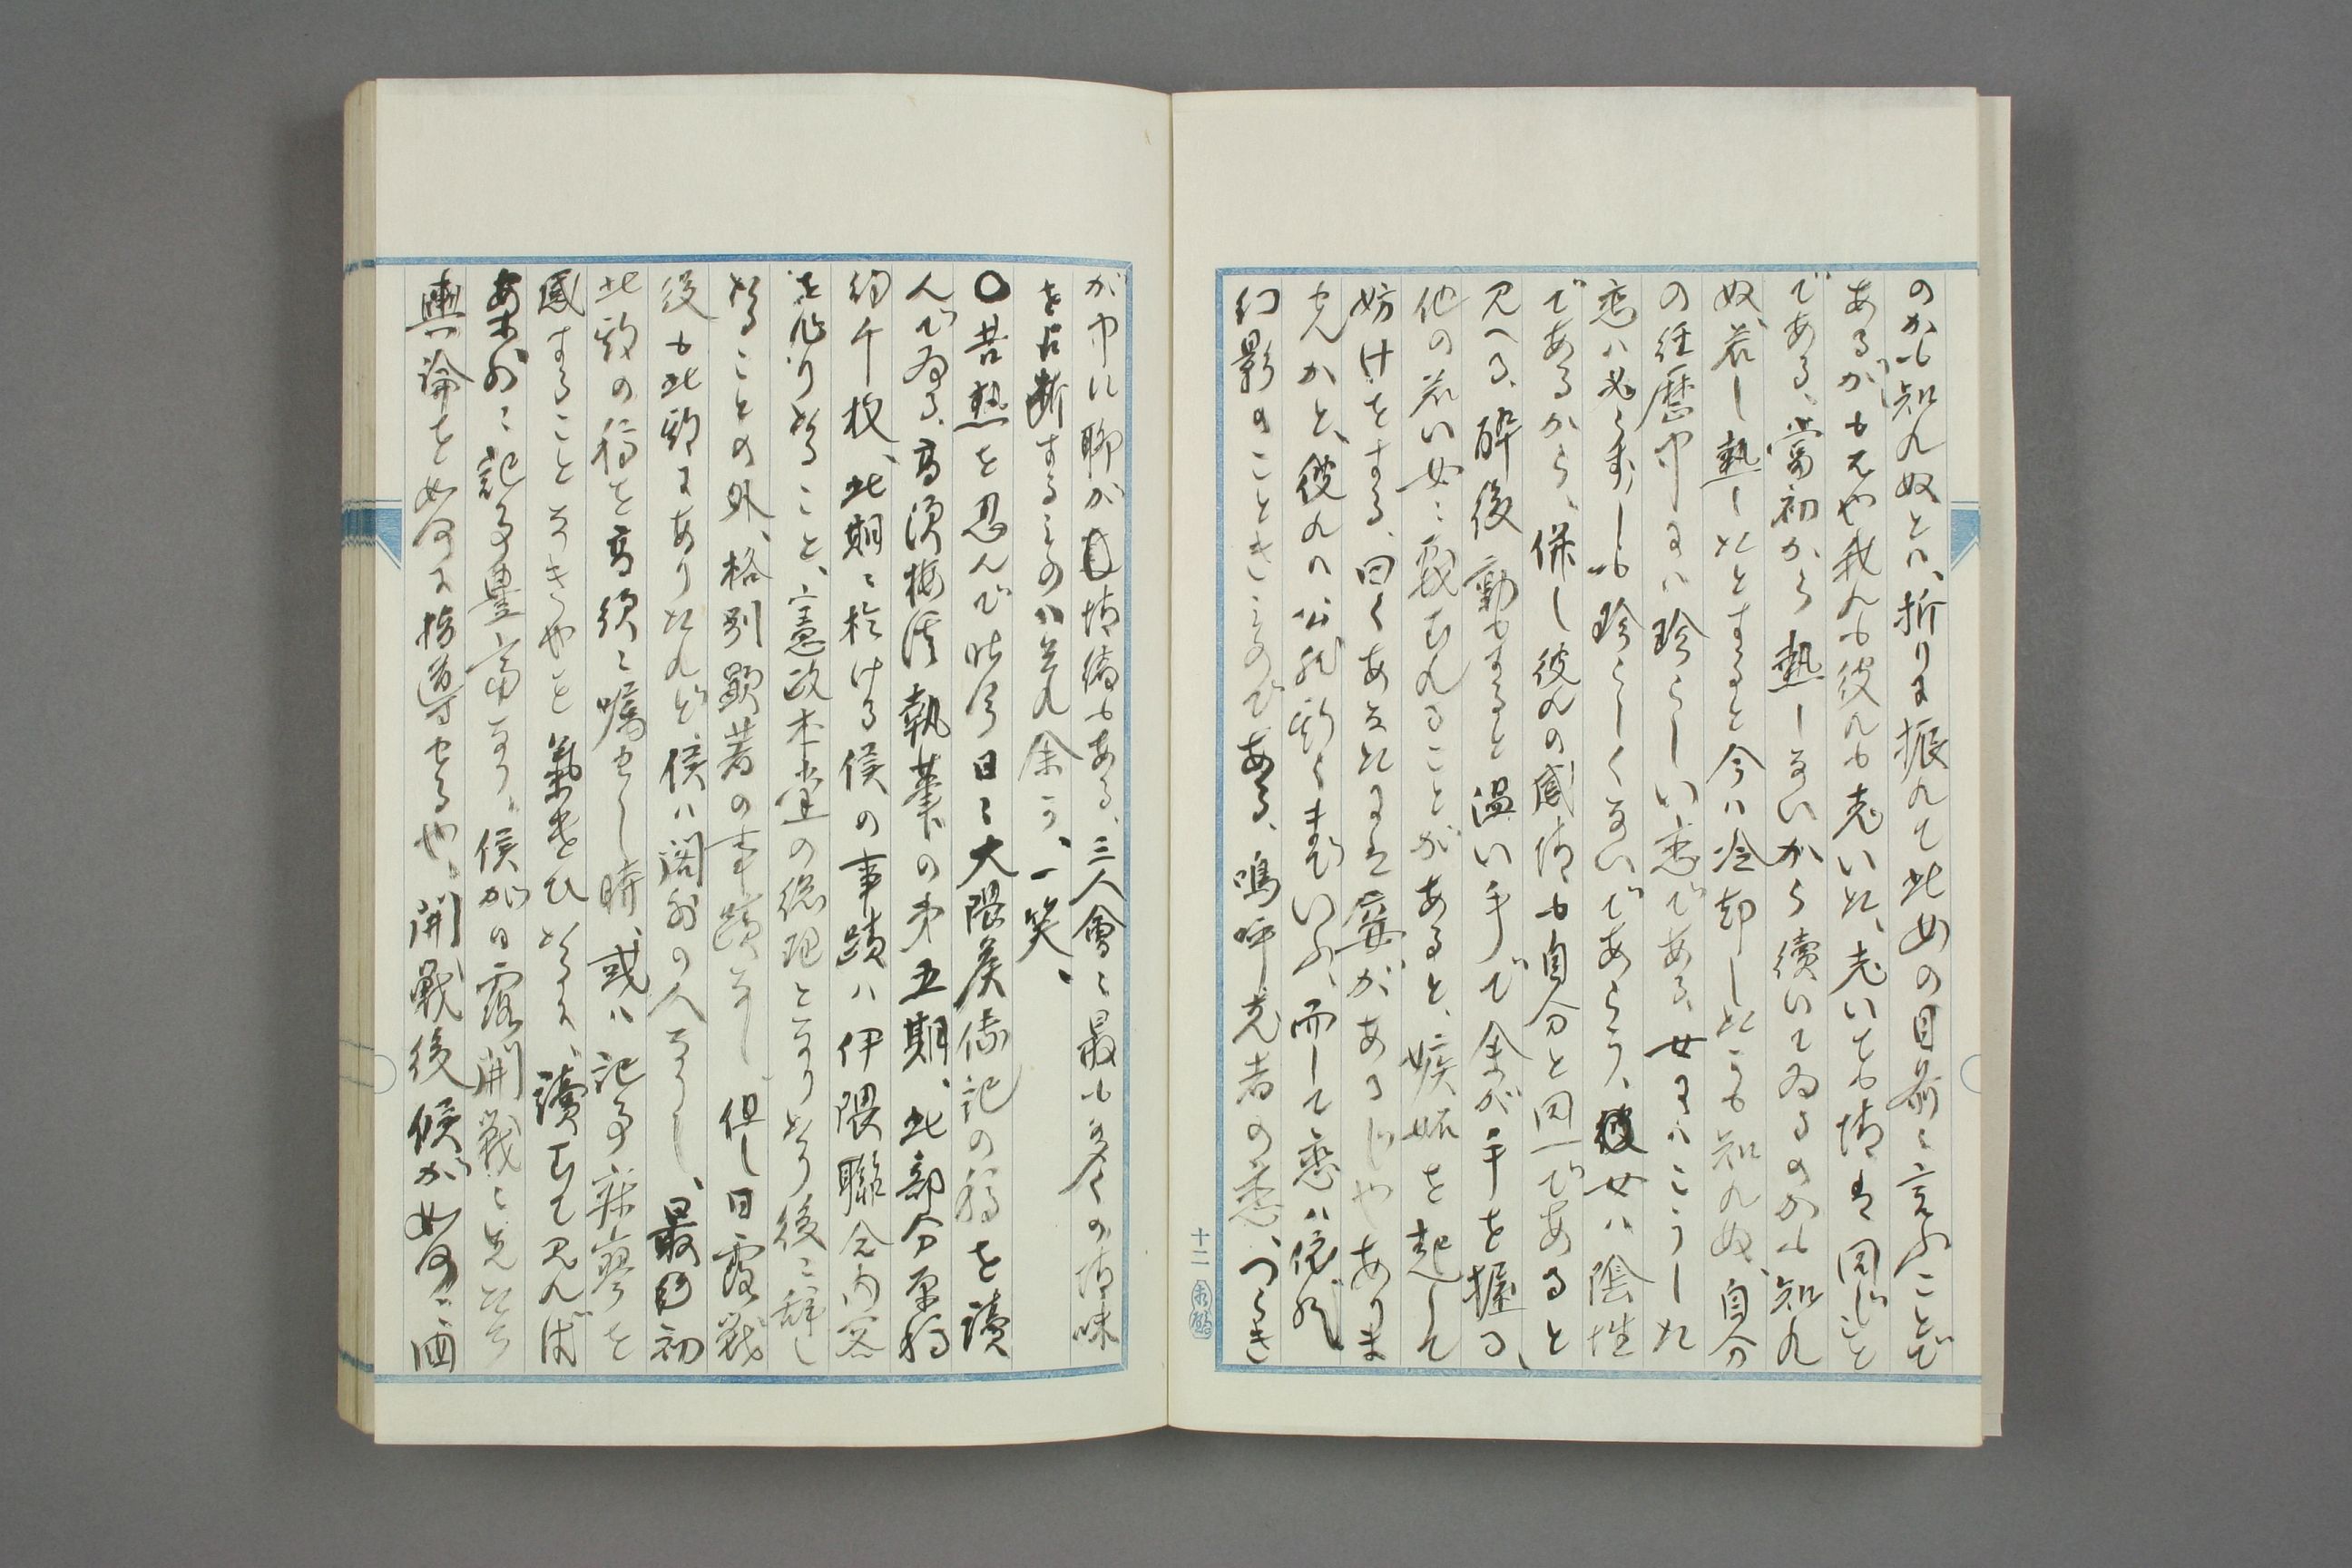 のかも知れぬとハ、折りま振れて此女の目前に言ふことで
あるが、もはや我れも彼れも老いた、老いても情は同じこと
である、當初から熱しないから續いてゐるのかも知れ
ぬ、若し熱したとすると今ハ冷却したかも知れぬ、自分
の径歴中にハ珍らしい恋である、女にハこうした
恋ハ必らずしも珍らしくないであらう、彼女ハ陰性
であるから、併し彼れの感情も自分と同一であると
見へる、酔後動もすると温い手で余が手を握る、
他の若い女に戯むれることがあると、嫉妬を起して
妨けをする、曰くあなたにハ妾があるじやありま
せんかと、彼れハ公然斯くまでいふ、而して恋ハ依然
幻影のこときものである、嗚呼老者の恋、つらき
が中に聊か情緒もある、三人會に最も多くの情味
を占断するものハそれ余か、一笑、
〇苦熱を忍んで昨今日に大隈侯傳記の稿を讀
んでゐる、高須梅渓執筆の第五期、此部分原稿
約千枚、此期に於ける侯の事蹟ハ伊隈聯合内閣
を作りたること、憲政本黨の総理となりたり後に辞し
たることの外、格別顕著の事蹟なし、但し日露戦
役も此期にありたれど侯ハ閫外の人なりし、最初
此部の稿を高須に嘱せし時、或ハ記事寂寥を
感することなきやと氣遣ひたるに、讀むて見れば
案外に記事豊富なり、侯が日露開戦に先だち
輿論を如何に指導せるや、開戦後侯が如何に西
十二